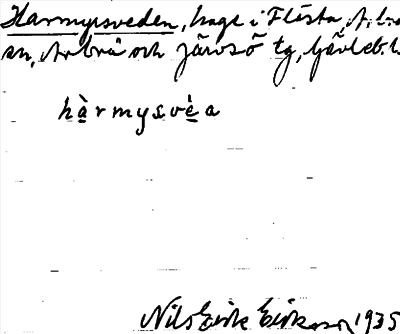 Harmyrsveden, hage i Flästa, A
sn, Arbrå och Järvsö tg, Gävleb. l.
hàrmysvèa
Nils Eirik Eriksson 1935